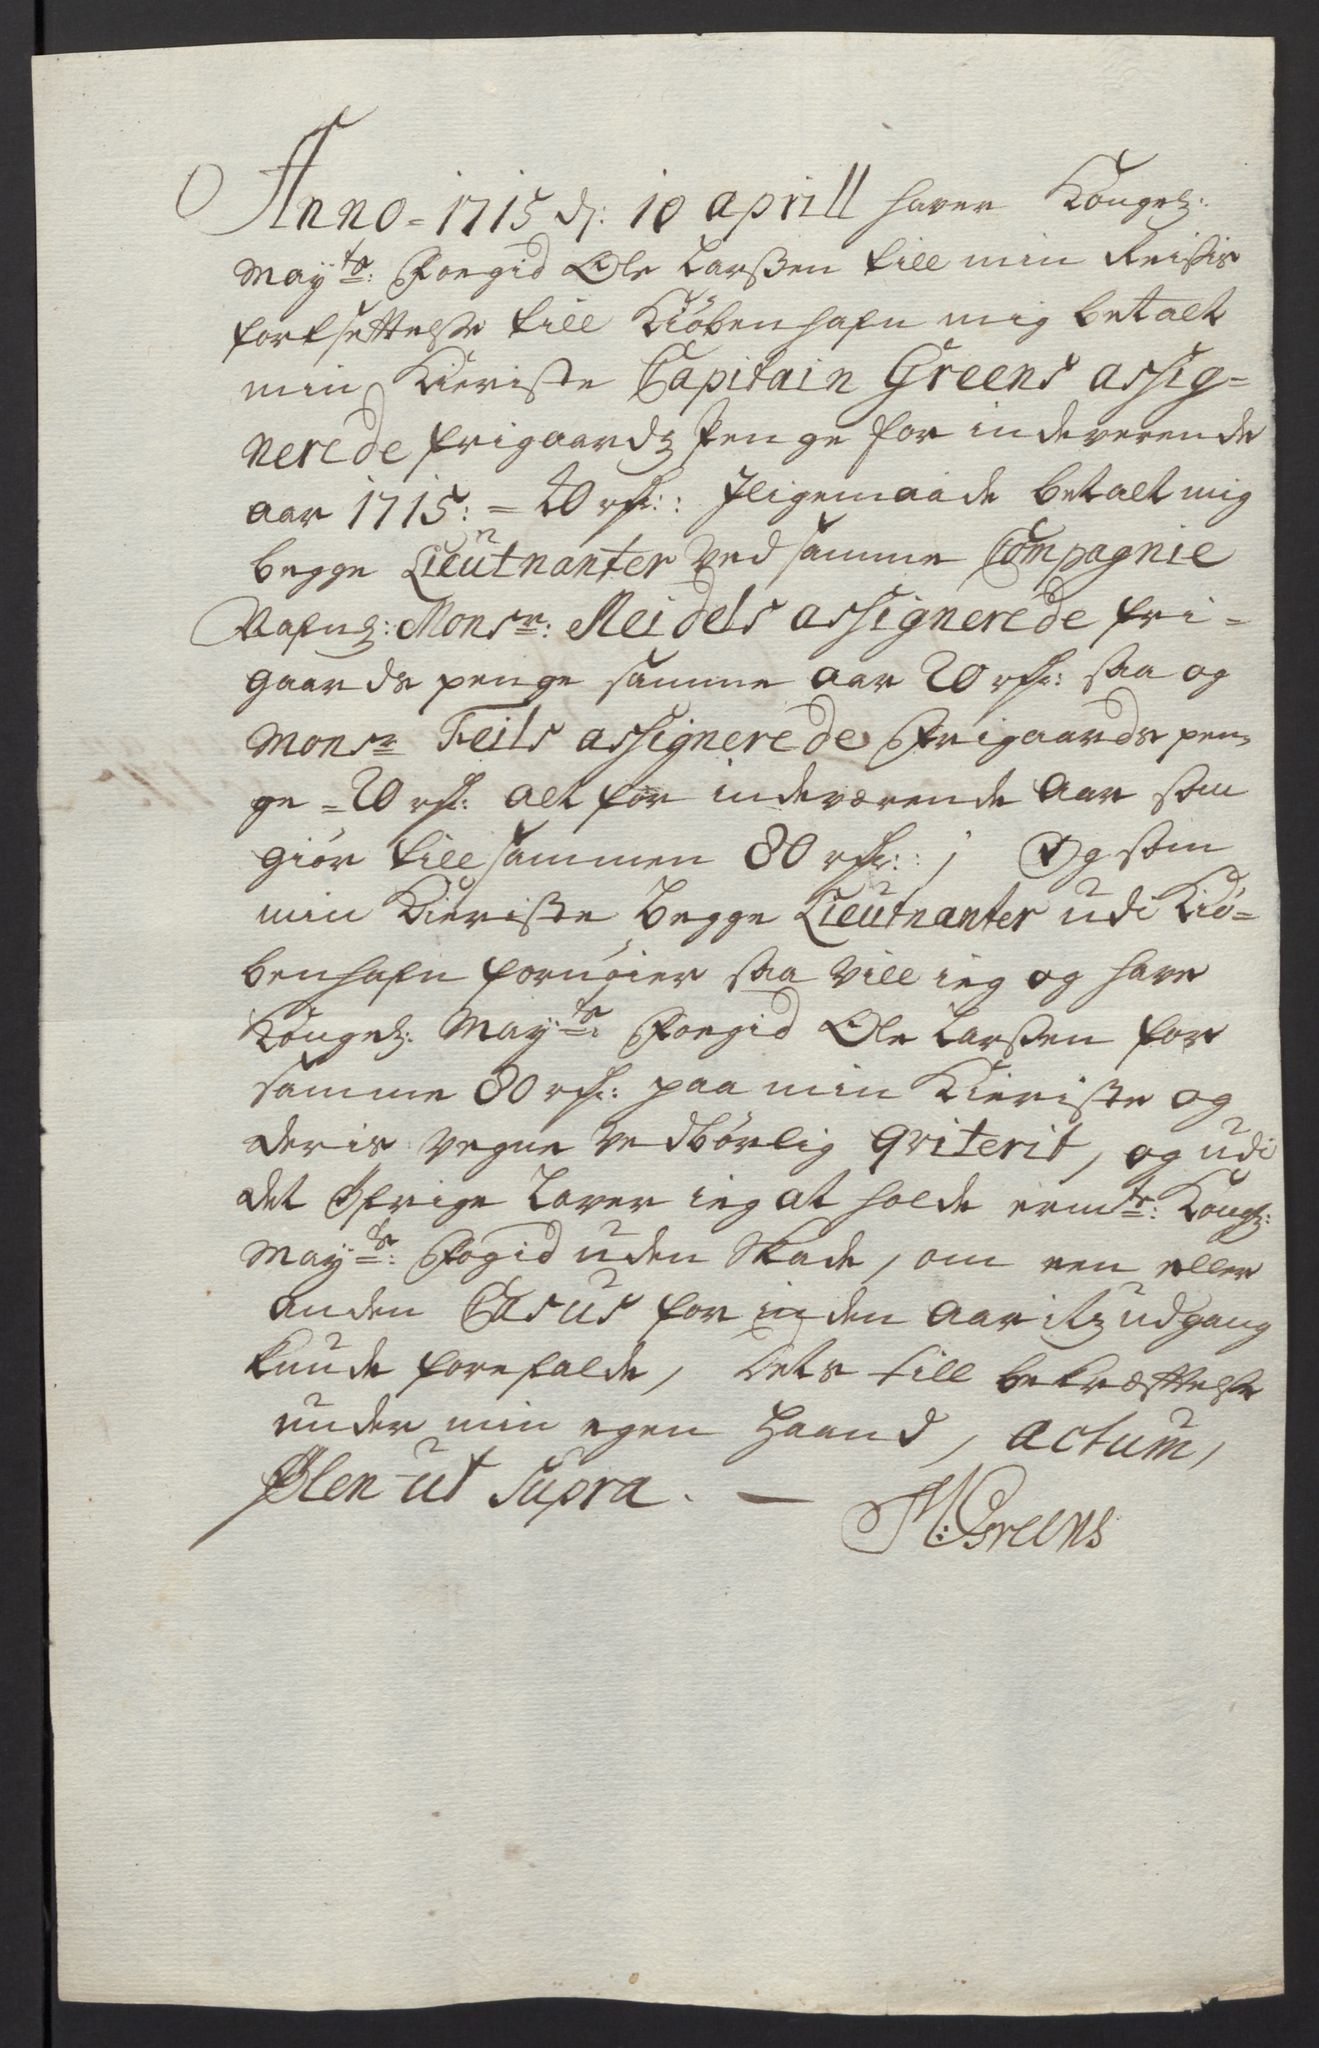 Anno = 1715 d: 10 aprill haver Kongel:
May:ts: Foegid Ole Larssen till min Reisis
fortsettelse till Kiöbenhafn mig betalt
min Kieriste Capitain Greens assig=
nerede frigaards Penge for indeverende
aar 1715: = 40 rdr: Iligemaade betalt mig
begge Lieutnanter ved samme Compagnie
Nafnl: Monsr: Reidels assignerede fri=
gaards penge samme aar 20 rdr: saa og
Monsr Feils assignerede Frigaards pen=
ge = 20 rdr: alt for indeværende Aar som
giör till sammen 80 rdr: ; Og som
min Kieriste begge Lieutnanter udi Kiö=
benhafn fornöier saa vill ieg og have
Kongel: May:ts: Foegid Ole Larssen for
samme 80 rdr: paa min Kieriste og
deris vegne vedbörlig qviterit, og udi
det Öfrige Lover ieg at holde ermte: Kongl:
May:ts: Fogid uden Skade, om een eller
anden Casus for inden Aaritz udgang
kunde forefalde, Dets till bekræfttelse
under min egen Haand, actum,
Olen ut Supra. —
M: Greens